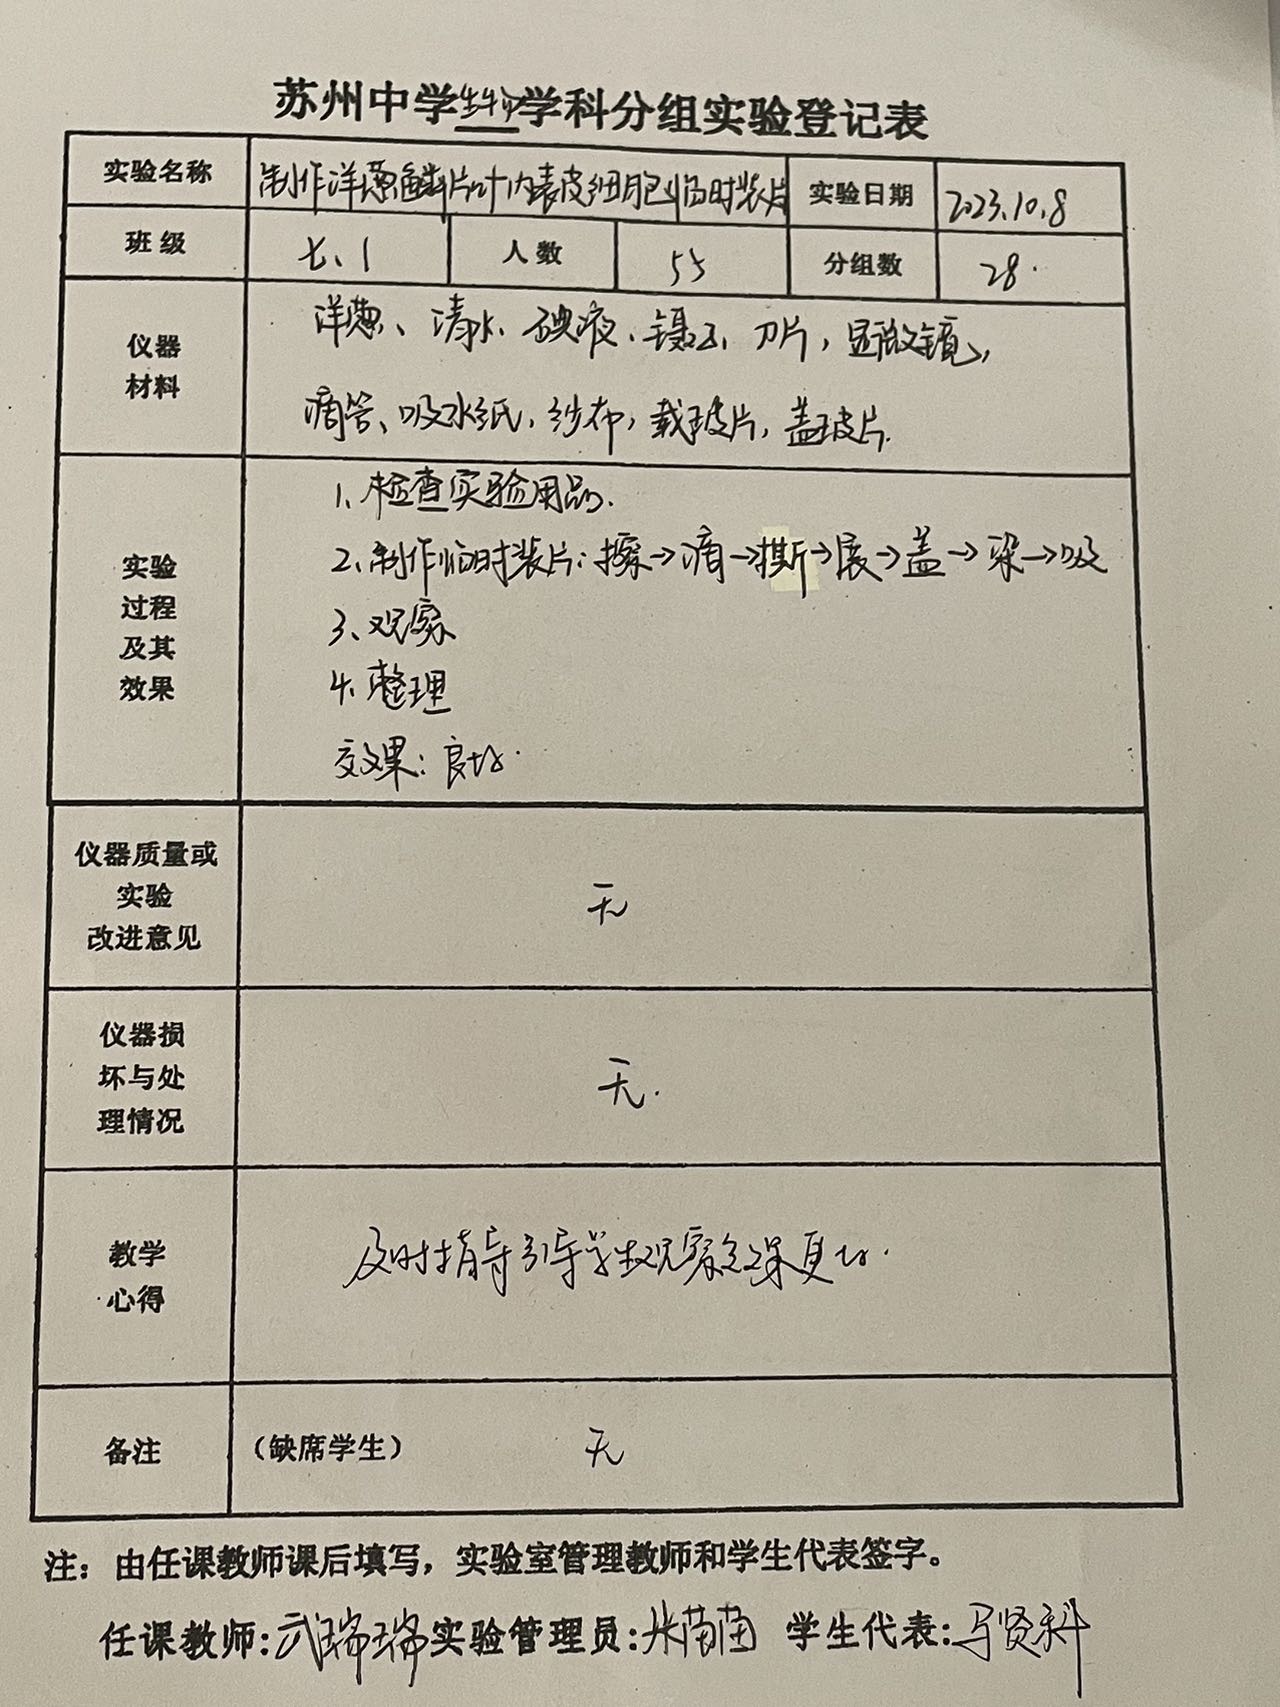 苏州中学生物学科分组实验登记表
实验名称 制作洋葱鳞片叶内表皮细胞临时装片 实验日期 2023.10.8
班级 七、1 人数 55 分组数 28.
仪器
材料
洋葱、清水、碘液、镊子、刀片，显微镜，
滴管、吸水纸，纱布，载玻片，盖玻片.
实验
过程
及其
效果
1、检查实验用品.
2、制作临时装片：擦→滴→撕→展→盖→染→吸
3、观察
4、整理
效果：良好.
仪器质量或
实验
改进意见
无
仪器损
坏与处
理情况
无.
教学
心得
及时指导引导学生观察效果更好.
备注 （缺席学生） 无
注：由任课教师课后填写，实验室管理教师和学生代表签字。
任课教师:武瑞瑞 实验管理员:张苗苗 学生代表:马贤科